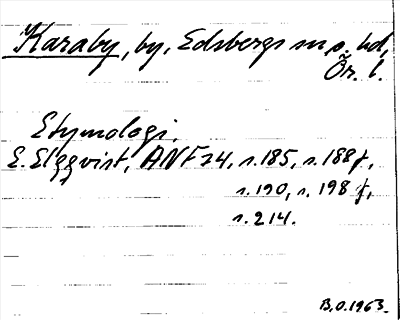 Karaby, by, Edsbergs sn o. hd,
Ör. l.
Etymologi.
E. Elgqvist, ANF 24, s. 185, s. 188 f,
s. 190, s. 198 f,
s. 214.
B.O. 1963.